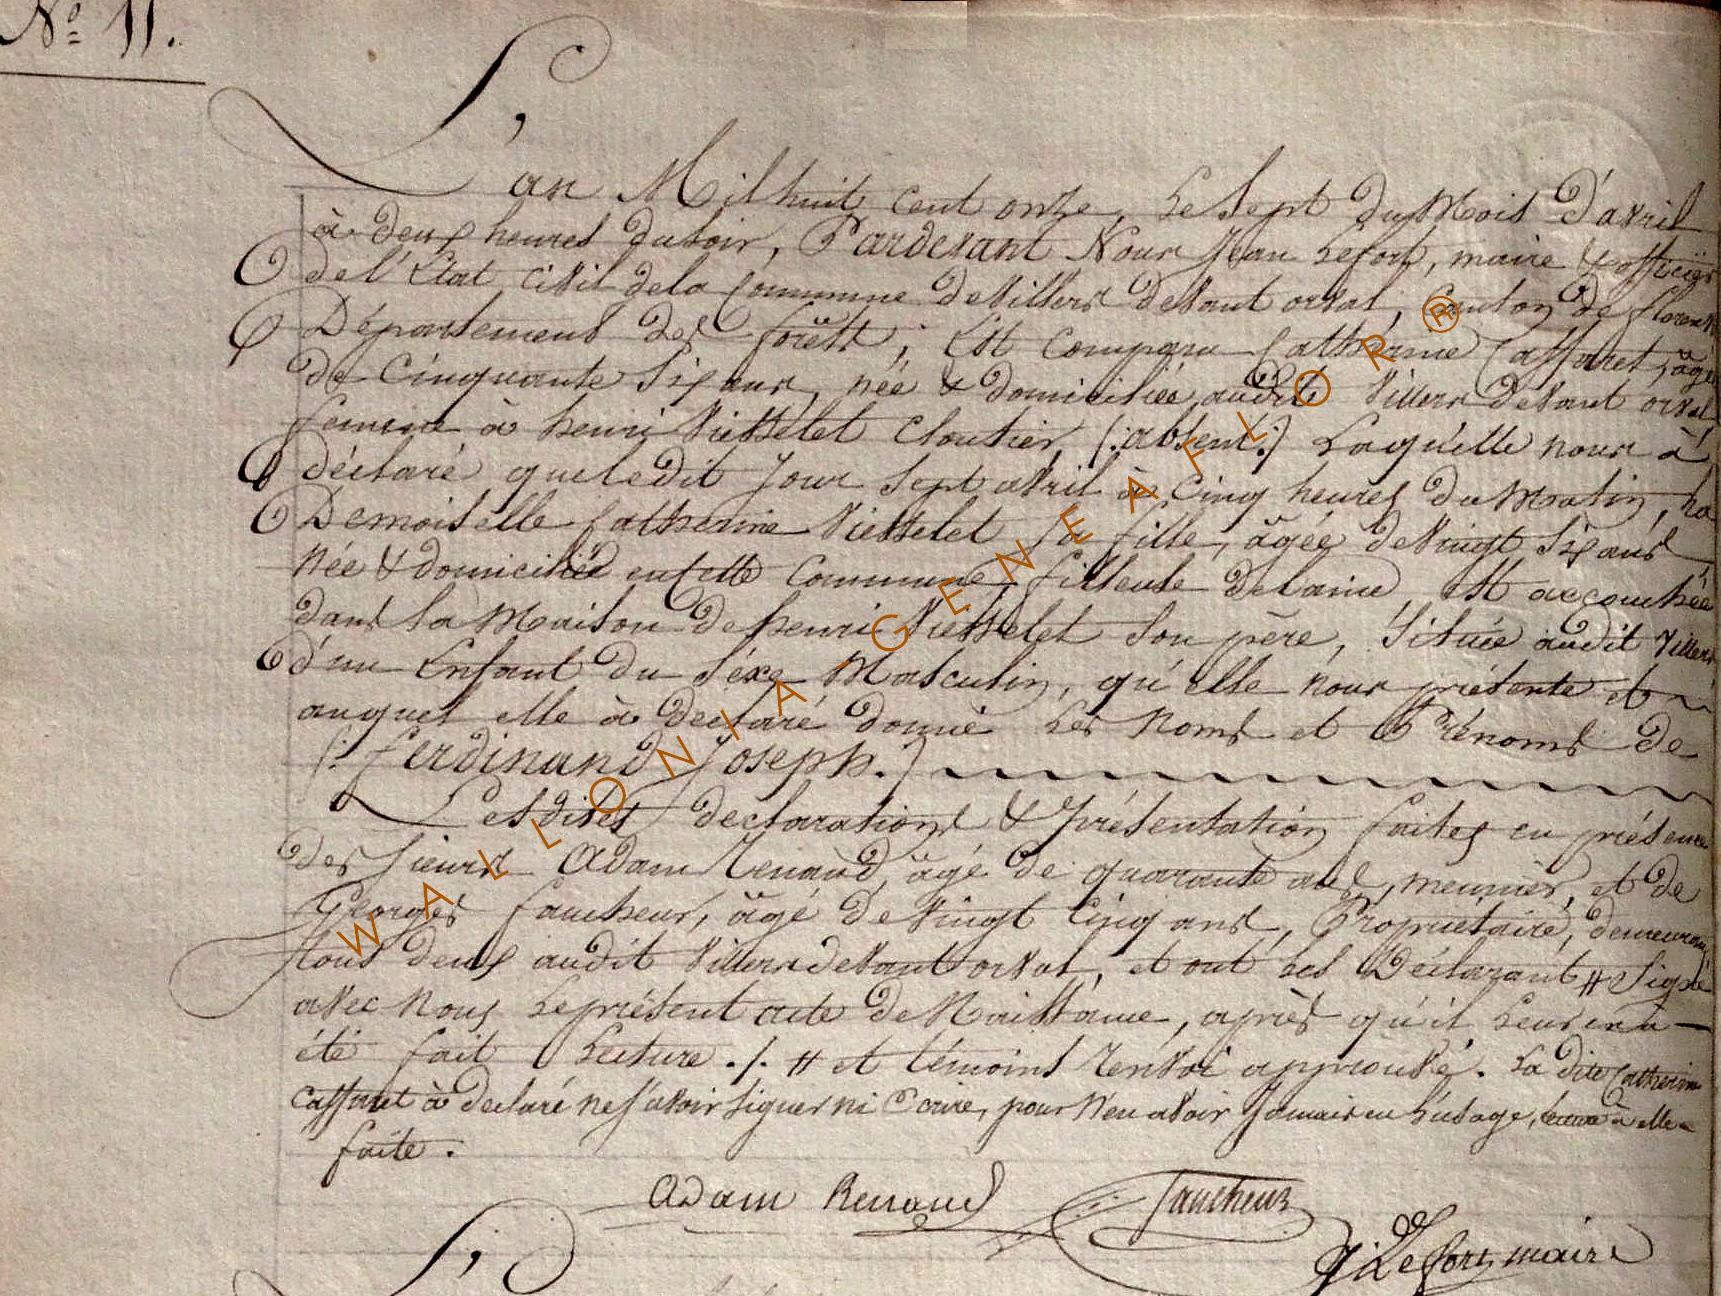 N° 11.
L'
an Mil huit cent onze, Le Sept du Mois d'avril
à deux heures du soir, Pardevant Nous Jean Lefort, maire & officier
de l'Etat civil de la Commune de Villers devant orval, Canton de Florenv
Département des forêts, Est Comparu Catherine Caffaret, âgé
de Cinquante Six ans, née & domiciliée audit Villers devant orval
femme à henri Viesselet Cloutier (:absent:) Laquelle nous à
déclaré que ledit Jour Sept avril à Cinq heures du Matin, la
Demoiselle Catherine Viesselet sa fille, âgée de Vingt Six ans
née & domiciliée en cette Commune, fileuse de laine, Est accouchée
dans la Maison de henri Viesselet Son père, Située audit Villers
d'un Enfant du Séxe Masculin, qu'elle nous présente et
auquel elle à declaré donné Les Noms et Prénoms de
(: ferdinand Joseph. )
Lesdites declarations & présentation faites en présence
des Sieurs Adam Renaud, âgé de quarante ans, meunier, et de
Georges faucheur, âgé de Vingt Cinq ans, Propriétaire, demeuran
tous deux audit Villers devant orval, et ont Les Déclarant # Signé
avec Nous Le présent acte de Naissance, après qu'il Leur en a
été fait Lecture ./. # et témoins Renvoi approuvé. La dite Catherine
Caffaret à declaré ne savoir Signer ni Ecrire, pour N'en avoir Jamais eu L'usage, Lecture à elle
faite.
Adam Renaud faucheur
J. Lefort, maire
L'
WALLONIA - GENEAFLOR ®